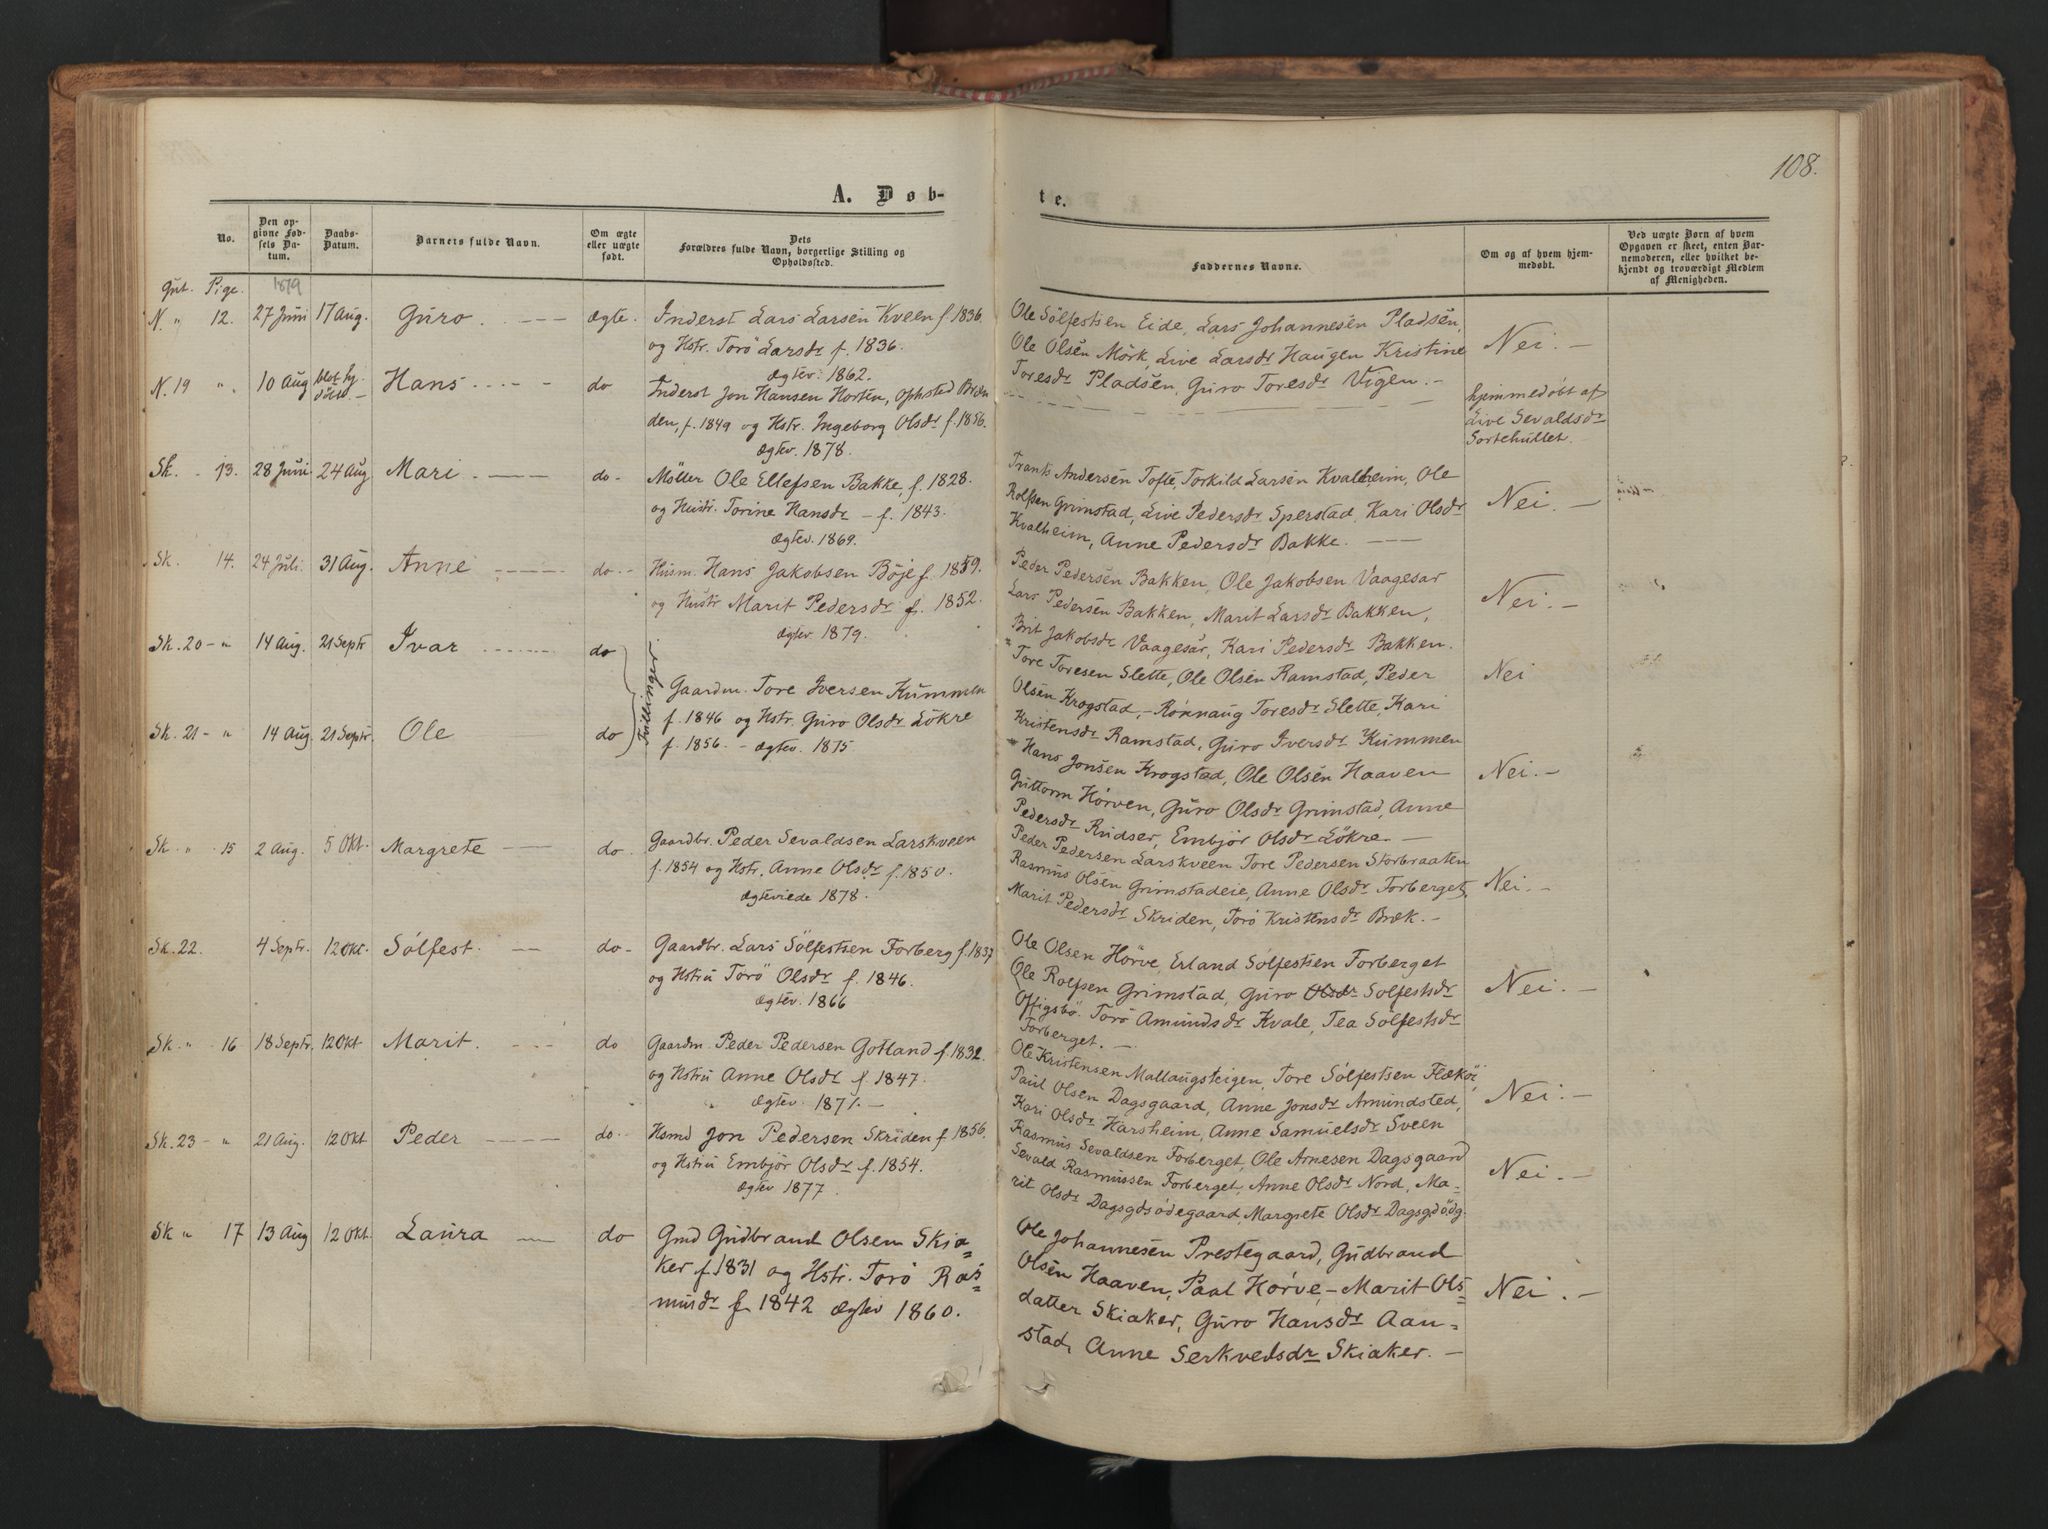 108.
A. Døb-
te.
No.
Den op-
givne Fød-
sels Da-
tum.
Daabs-
Datum.
Barnets fulde Navn.
Om ægte
eller uægte
født.
Dets
Forældres fulde Navn, borgerlige Stilling og
Opholdssted.
Faddernes Navne.
Om og af hvem hjem-
medøbt.
Ved uægte Børn af hvem
Opgaven er skeet, enten Bar-
nemoderen, eller hvilket be-
kjendt og troværdigt Medlem
af Menigheden.
Gut. Pige. 1879
N. " 12. 27 Juni 17 Aug. Guro. — ægte. Inderst Lars Larsen Kveen f. 1836.
og Hstr. Torö Larsdr f. 1836.
Ægtev: 1862.
Ole Sølfestsen Eide, Lars Johannesen Pladsen,
Ole Olsen Mörk, Live Larsdr Haugen Kristine
Toresdr Pladsen, Guro Toresdr Vigen. —
Nei. —
N. 19 " 10 Aug blot hj.
döbt — Hans — do Inderst Jon Hansen Horten, Ophsted Bræn
den, f. 1849 og Hstr. Ingeborg Olsdr f. 1856.
Ægtev. 1878.
hjemmedøbt af
Live Sevaldsdr
Sortehullet.
Sk. - 13. 28 Juni 24 Aug Mari — do - Møller Ole Ellefsen Bakke f. 1828.
og Hustr. Torine Hansdr — f. 1843.
Ægtev. 1869.
Frants Andersen Tofte, Torkild Larsen Kvalheim, Ole
Rolfsen Grimstad, Live Pedersdr Sperstad, Kari Olsdr
Kvalheim, Anne Pedersdr Bakke. —
Nei. —
Sk. 14. 24 Juli 31 Aug. Anne — do. - Husm. Hans Jakobsen Böje f. 1859.
og Hustr Marit Pedersdr f. 1852.
Ægtev. 1879.
Peder Pedersen Bakken, Ole Jakobsen Vaagesar
Lars Pedersen Bakken, Marit Larsdr Bakken,
Brit Jakobsdr Vaagesar, Kari Pedersdr Bakken.
Nei. —
Sk. 20 - " 14 Aug. 21 Septr Ivar — do
Tvillinger
Gaardm. Tore Iversen Kummen
f. 1846 og Hstr. Guro Olsdr Lökre
f. 1856. - Ægtev. 1875
" Tore Toresen Slette, Ole Olsen Ramstad, Peder
Olsen Krogstad, - Rönnaug Toresdr Slette, Kari
Kristensdr Ramstad, Guro Iversdr Kummen
Nei
Sk. 21 - " 14 Aug. 21 Septr. Ole do
" Hans Jonsen Krogstad, Ole Olsen Haaven
Guttorm Hörven, Guro Olsdr Grimstad, Anne
Pedersdr Rudser, Embjör Olsdr Lökre. —
Nei. —
Sk. " 15 2 Aug. 5 Okt. Margrete — do. Gaardbr. Peder Sevaldsen Larskveen
f. 1854 og Hstr. Anne Olsdr f. 1850.
Ægteviede 1878.
Peder Pedersen Larskveen Tore Pedersen Storbraaten
Rasmus Olsen Grimstadeie, Anne Olsdr Forberget,
Marit Pedersdr Skriden, Torö Kristensdr Bræk. —
Nei. —
Sk. 22. 4 Septr. 12 Okt. Sölfest. — do - Gaardbr. Lars Sölfestsen Forberg f. 1837
og Hstru Torö Olsdr f. 1846.
Ægtev. 1866
Ole Olsen Hörve, Erland Sölfestsen Forberget
Ole Rolfsen Grimstad, Guro Olsdr Sölfestsdr
Offigsbö. Torö Amundsdr Kvale, Tea Sölfestsdr
Forberget. —
Nei. —
Sk. " 16 18 Septr. 12 Okt Marit. — do Gaardm. Peder Pedersen Gotland f. 1832.
og Hstru Anne Olsdr f. 1847.
Ægtev. 1871. —
Ole Kristensen Mallaugsteigen, Tore Sölfestsen Flæköi,
Paul Olsen Dagsgaard, Anne Jonsdr Amundsted,
Kari Olsdr Harsheim, Anne Samuelsdr Sveen
Nei. —
Sk. 23 - " 21 Aug. 12 Okt Peder — do. - Hsmd Jon Pedersen Skriden f 1856.
og Hstru Embjör Olsdr f. 1854.
Ægtev 1877.
Rasmus Sevaldsen Forberget, Ole Arnesen Dagsgaard
Sevald Rasmussen Forberget, Anne Olsdr Nord, Ma-
rit Olsdr Dagsgdsödegaard, Margrete Olsdr Dagsgdödg.
Nei. —
Sk " 17 13 Aug 12 Okt. Laura — do Gmd Gudbrand Olsen Skia=
ker f 1831 og Hstr. Torö Ras
musdr f 1842 Ægtev 1860.
Ole Johannesen Prestegaard, Gudbrand
Olsen Haaven, Paal Hörve, - Marit Ols=
datter Skiaker, Guro Hansdr Aan=
stad, Anne Serkvedsdr Skiaker. —
Nei. —